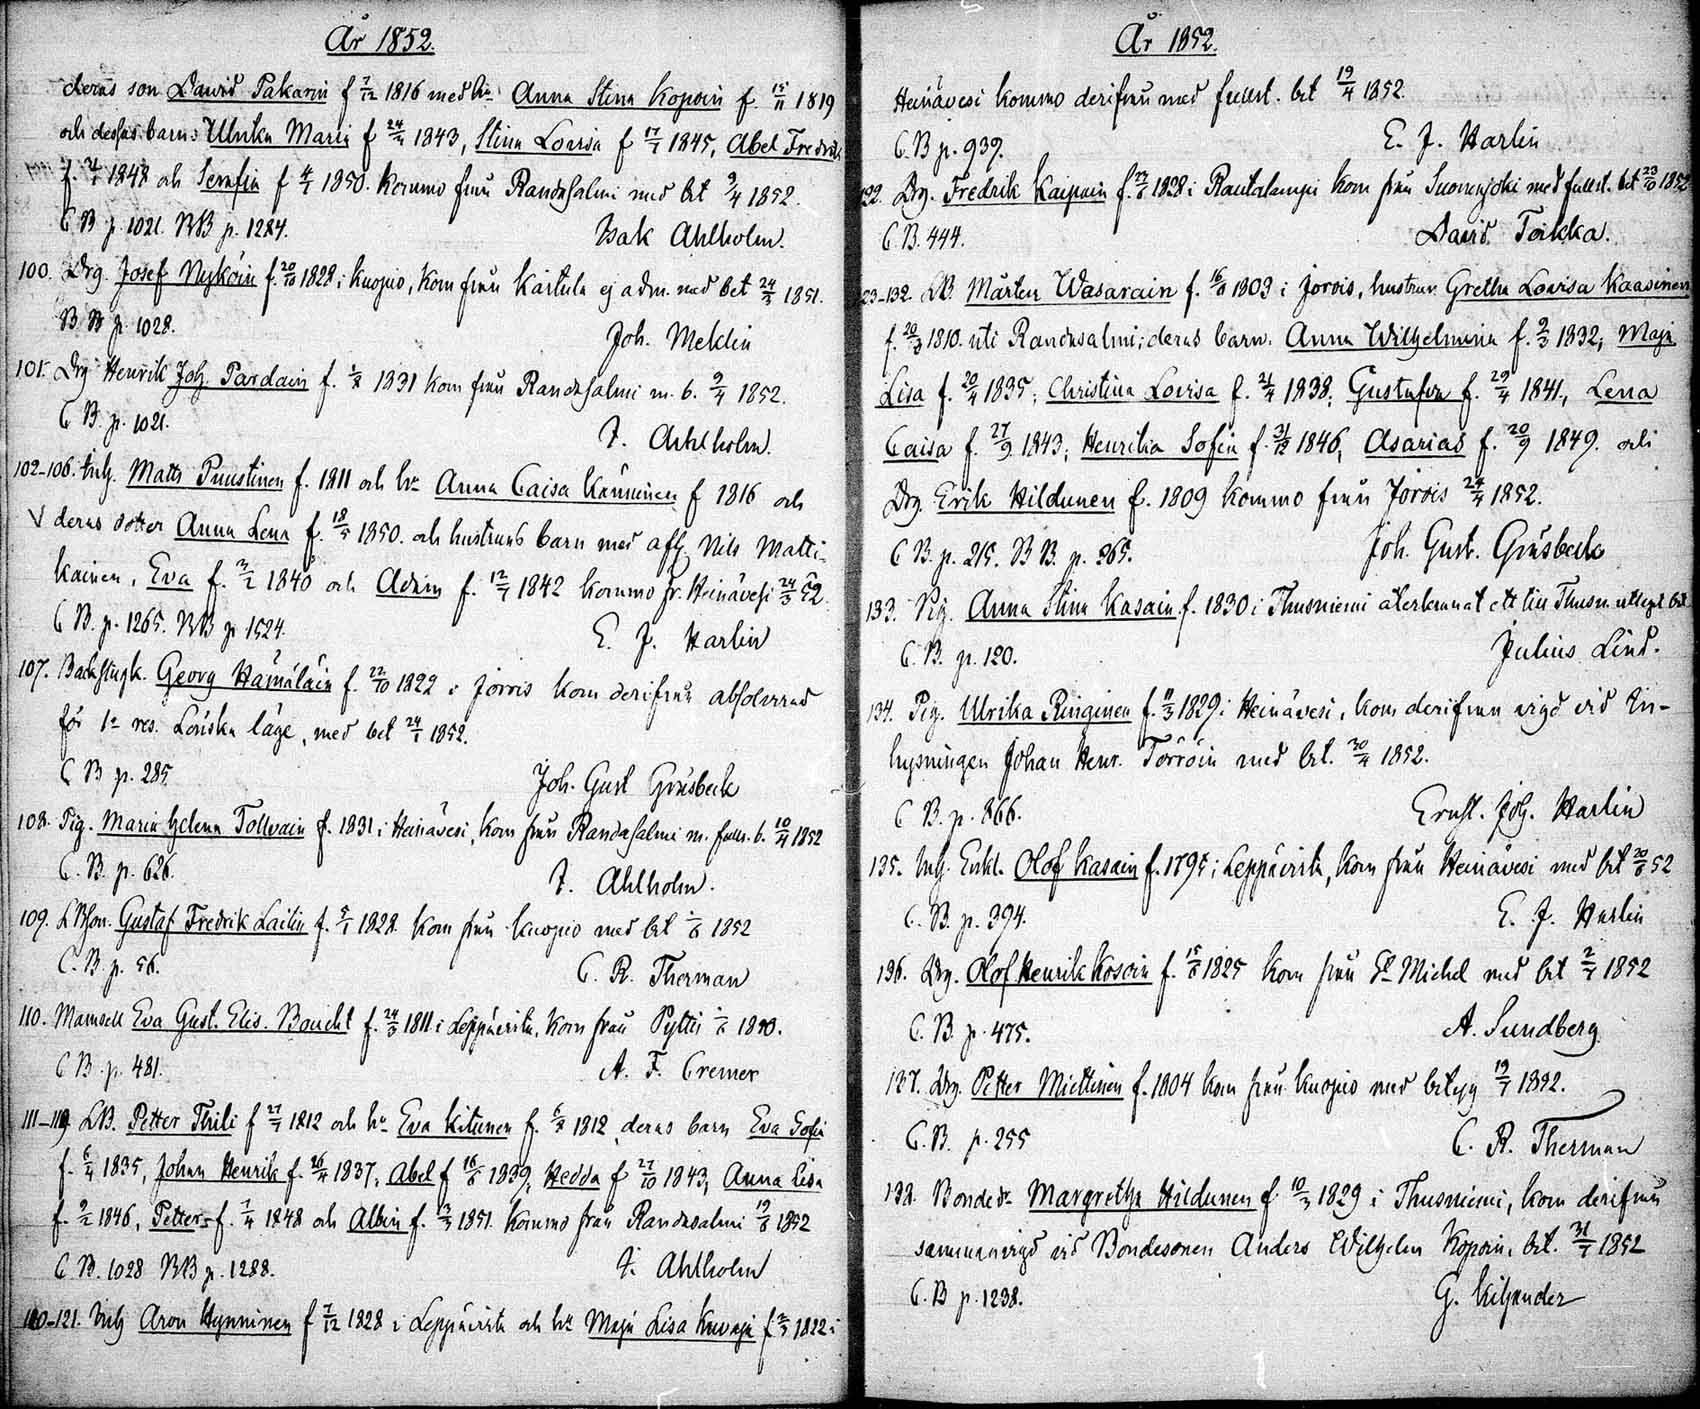 År 1852.
deras son David Pakarin f 7/12 1816 med hu Anna Stina Kopoin f. 15/11 1819
och dessas barn: Ulrika Maria f 24/4 1843, Stina Lovisa f 17/1 1845, Abel Fredrik
1848 och Serafia f 4/1 1850. kommo från Randasalmi med bet 9/4 1852.
C B p. 1021. NB p. 1284.
Isak Ahlholm.
100. Drg. Josef Nykóin f. 20/10 1828 i Kuopio, kom från Kaitula ej adm. med bet 24/3 1851.
B B p. 1028.
Joh. Meklin
101. Drg Henrik Joh. Pardain f. 1831 kom från Randasalmi m. b. 9/4 1852.
C B. p. 1021.
I. Ahlholm.
102-106. Inh. Matts Puustinen f. 1811 och hu Anna Caisa Känninen f 1816 och
V deras dotter Anna Lena f. 18/5 1850. och hustruns barn med afl. Nils Matti-
kainen, Eva f. 2/2 1840 och Adam f. 12/7 1842 kommo fr. Heinävesi 24/3 52
C B. p. 1265. NB p 1524.
E. J. Harlin
107. Georg Hämäläin f. 22/10 1822 i Jorois kom derifrån absolverad
för 1a res. Lönska läge, med bet 24/1 1852.
C B p. 285.
Joh. Gust Gråsbeck
108. Pig. Maria Helena Tollvain f. 1831 i Heinävesi, kom från Randasalmi m. fulls. b. 10/4 1852
C. B. p. 626.
I. Ahlholm.
109. LBson. Gustaf Fredrik Laitin f. 5/1 1828 kom från Kuopio med bet 1/6 1852
C. B p. 56.
C. R. Therman
110. Mamsell Eva Gust. Elis. Boucht f. 24/8 1811 i Leppävirta, kom från Pyttis
C B p. 481.
A. F. Cremer
111-119 LB. Petter Thili f 27/7 1812 och hu Eva Kitunen f. 1812 deras barn Eva Sofia
f. 6/4 1835, Johan Henrik f. 26/4 1837, Abel f 16/6 1839, Hedda f 27/10 1843, Anna Lisa
f. 9/2 1846, Petter f. 7/4 1848 och Albin f. 3/3 1851 kommo från Randasalmi 19/6 1852
C B. 1028 NB p. 1288.
I. Ahlholm
120-121. Inh Aron Hynninen f 7/12 1828 i Leppävirta och hu Maja Lisa Kuvaja f 2/3 1822 i
År 1852.
Heinävesi kommo derifrån med fullst. bet 19/4 1852.
C. B p. 939.
E. J. Harlin
122. Drg. Fredrik Kaipain f. 22/6 1828 i Rautalampi kom från Suonenjoki med fullst. bet 23/10 1852
C. B. 444.
David Toikka.
123-132. LB. Mårten Wasarain f. 16/8 1803 i Jorois, hustrun Gretha Lovisa Kaasinen
f. 20/8 1810. uti Randasalmi; deras barn. Anna Wilhelmina f. 2/3 1832, Maja
Lisa f. 20/4 1835, Christina Lovisa f. 21/4 1838, Gustafva f. 29/4 1841, Lena
Caisa f. 27/9 1843, Henrika Sofia f. 31/12 1846, Asarias f. 20/9 1849. och
Drg. Erik Hildunen f. 1809 kommo från Jorois 24/4 1852.
C B. p. 215. B B. p. 265.
Joh. Gust. Gråsbeck
133. Pig. Anna Stina Kasain f. 1830 i Thusniemi återlemnat ett till Thusn. uttagit bet
C. B. p. 120.
Julius Lind.
134. Pig. Ulrika Ringinen f. 11/3 1829 i Heinävesi, kom derifrån vigd vid In-
hysningen Johan Henr. Törröin med bet. 30/4 1852.
C B. p. 866.
Ernst. Joh. Harlin
135. Inh. Enkl. Olof Kasain f. 1795 i Leppävirta, kom från Heinävesi med bet 20/6 52
C. B. p. 394.
E. J. Harlin
136. Drg. Olof Henrik Kosoin f. 15/6 1825 kom från St Michel med bet 2/7 1852
C. B. p. 475.
A. Sundberg
137. Drg. Petter Miettinen f. 1804 kom från Kuopio med betyg 19/7 1852.
C. B. p. 255
C. R. Therman
138. Bondedr Margretha Hildunen f 10/3 1829 i Thusniemi, kom derifrån
sammanvigd vid Bondesonen Anders Wilhelm Kopoin, bet. 31/7 1852
C. B p. 1238.
G. Kiljander